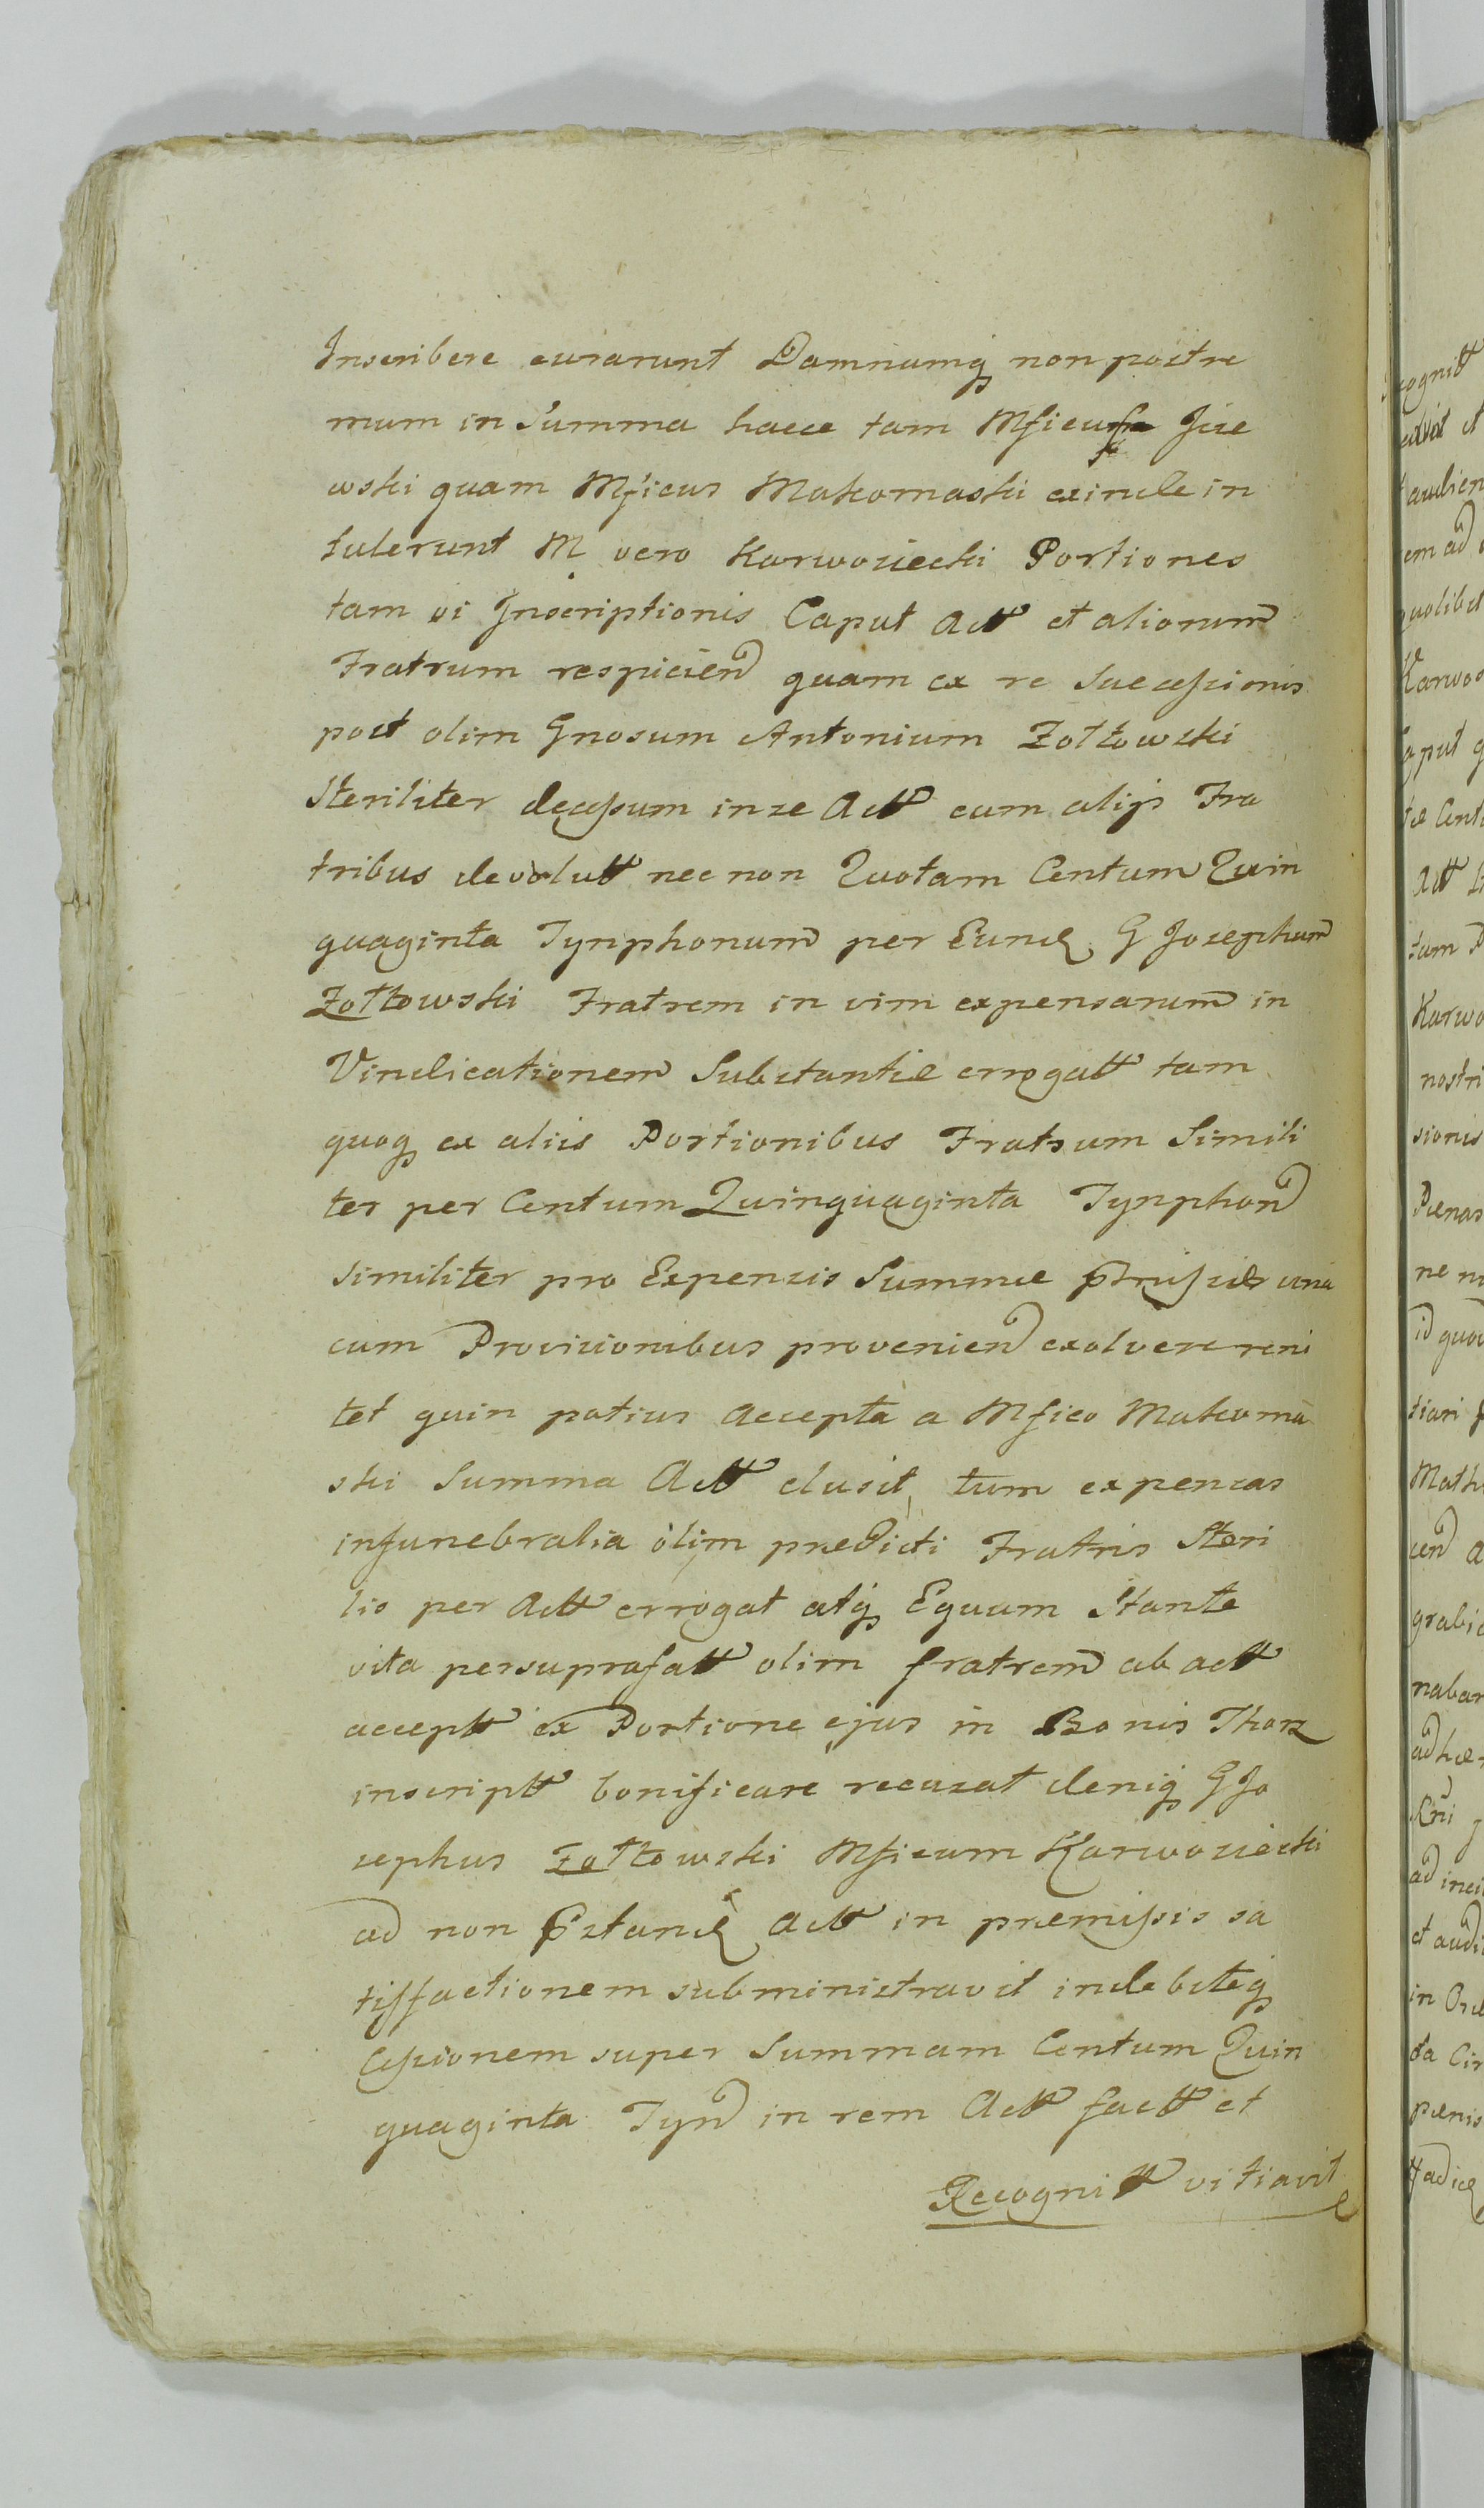 Inscribere curarunt Damnumq non postre
mum in Summa haece tam Mficus Jze
wski quam Mficus Makomaski exinde in
tulerunt M vero Karwosiecki Portiones
tam vi Inscriptionis Caput Actt et aliorum
Fratrum respicien quam ex re Successionis
post olim Gnosum Antonium Zołtowski
Steriliter decessum in se Actt cum alijs Fra
tribus devolutt nec non Quotam Centum Quin
quaginta Tynphonum per Eund G Josephum
Zołtowski Fratrem in vim expensarum in
Vindicationem Substantiæ errogatt tam
quoq ex aliis Portionibus Fratrum Simili
ter per Centum Quinquaginta Tynphon
similiter pro Expensis Summæ una
cum Provisionibus provenien exolvere reni
tet quin potius accepta a Mfico Makoma
ski Summa Actt elusit, tum expensas
in funebralia olim prædicti Fratris Steri
lis per Actt errogat atq Equum Stante
vita per suprafatt olim fratrem ab actt
acceptt ex Portione ejus in Bonis Thorz
inscriptt bonificare recusat deniq G Jo
sephus Zołtowski Mficum Karwosiecki
ad non Pstand Actt in præmissis sa
tisfactionem subministravit indebiteq
Cessionem super Summam Centum Quin
quaginta Tyn in rem Actt factt et
Recognitt vitiavit
cognitt
audien
em ad
quolibet
Karwos
put q
Cent
Actt
tam P
Karwo
nostri
sionis
Pænas
ne n
id quo
tiari
Math
cen a
grabi
nabar
ad
et audi
in Ord
ta Cir
pænis